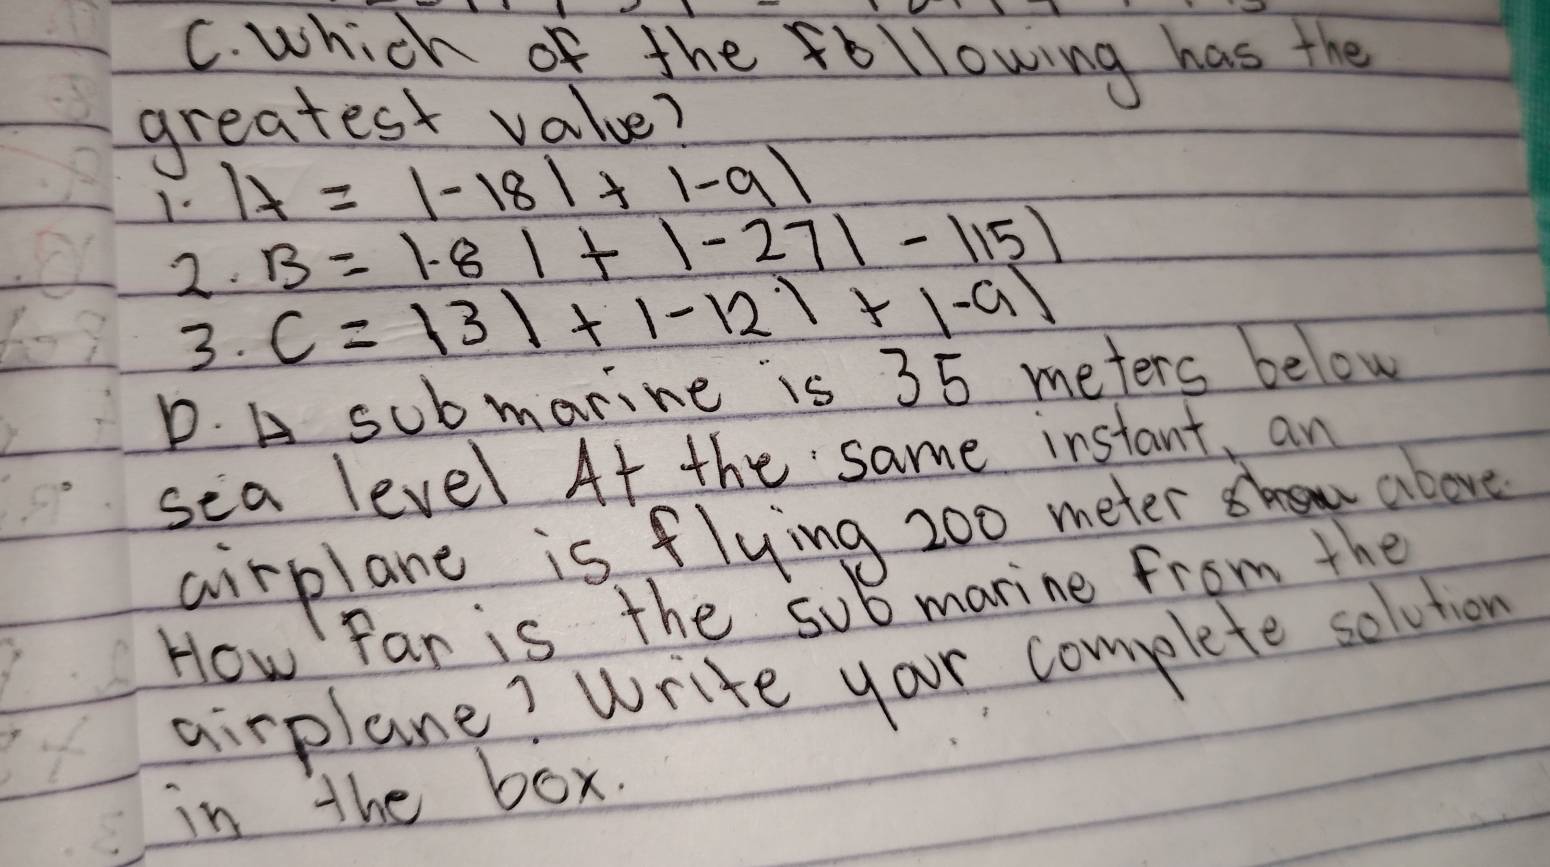 C. Which of the following has the
greatest value?
1. A = |-18| + |-9|
2. B = |-8| + |-27| - |15|
3. C = |3| + |-12| + |-9|
D. A submarine is 35 meters below
sea level At the same instant, an
airplane is flying 200 meter above.
How far is the submarine from the
airplane? Write your complete solution
in the box.